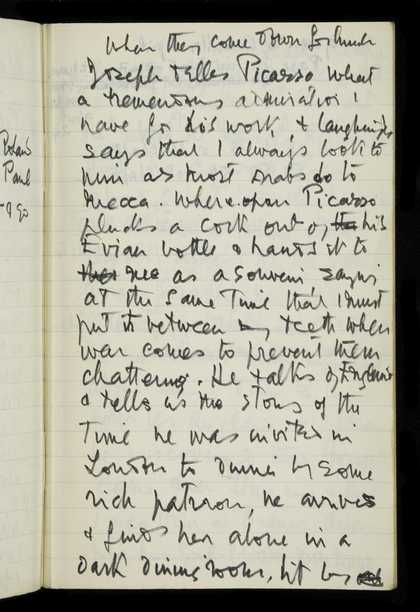 When they come down for lunch
Joseph tells Picasso what
a tremendous admiration I
have for his work, & laughingly
says that I always look to
him as most Arabs do to
Mecca. Whereupon Picasso
plucks a cork out of the his
Evian bottle & hands it to
me as a souvenir saying
at the same time that I must
put it between my teeth when
war comes to prevent them
chattering. He talks of England
& tells us the story of the
time he was invited in
London to dinner by some
rich patron, he arrives
& finds her alone in a
dark dining room, lit by
Paul